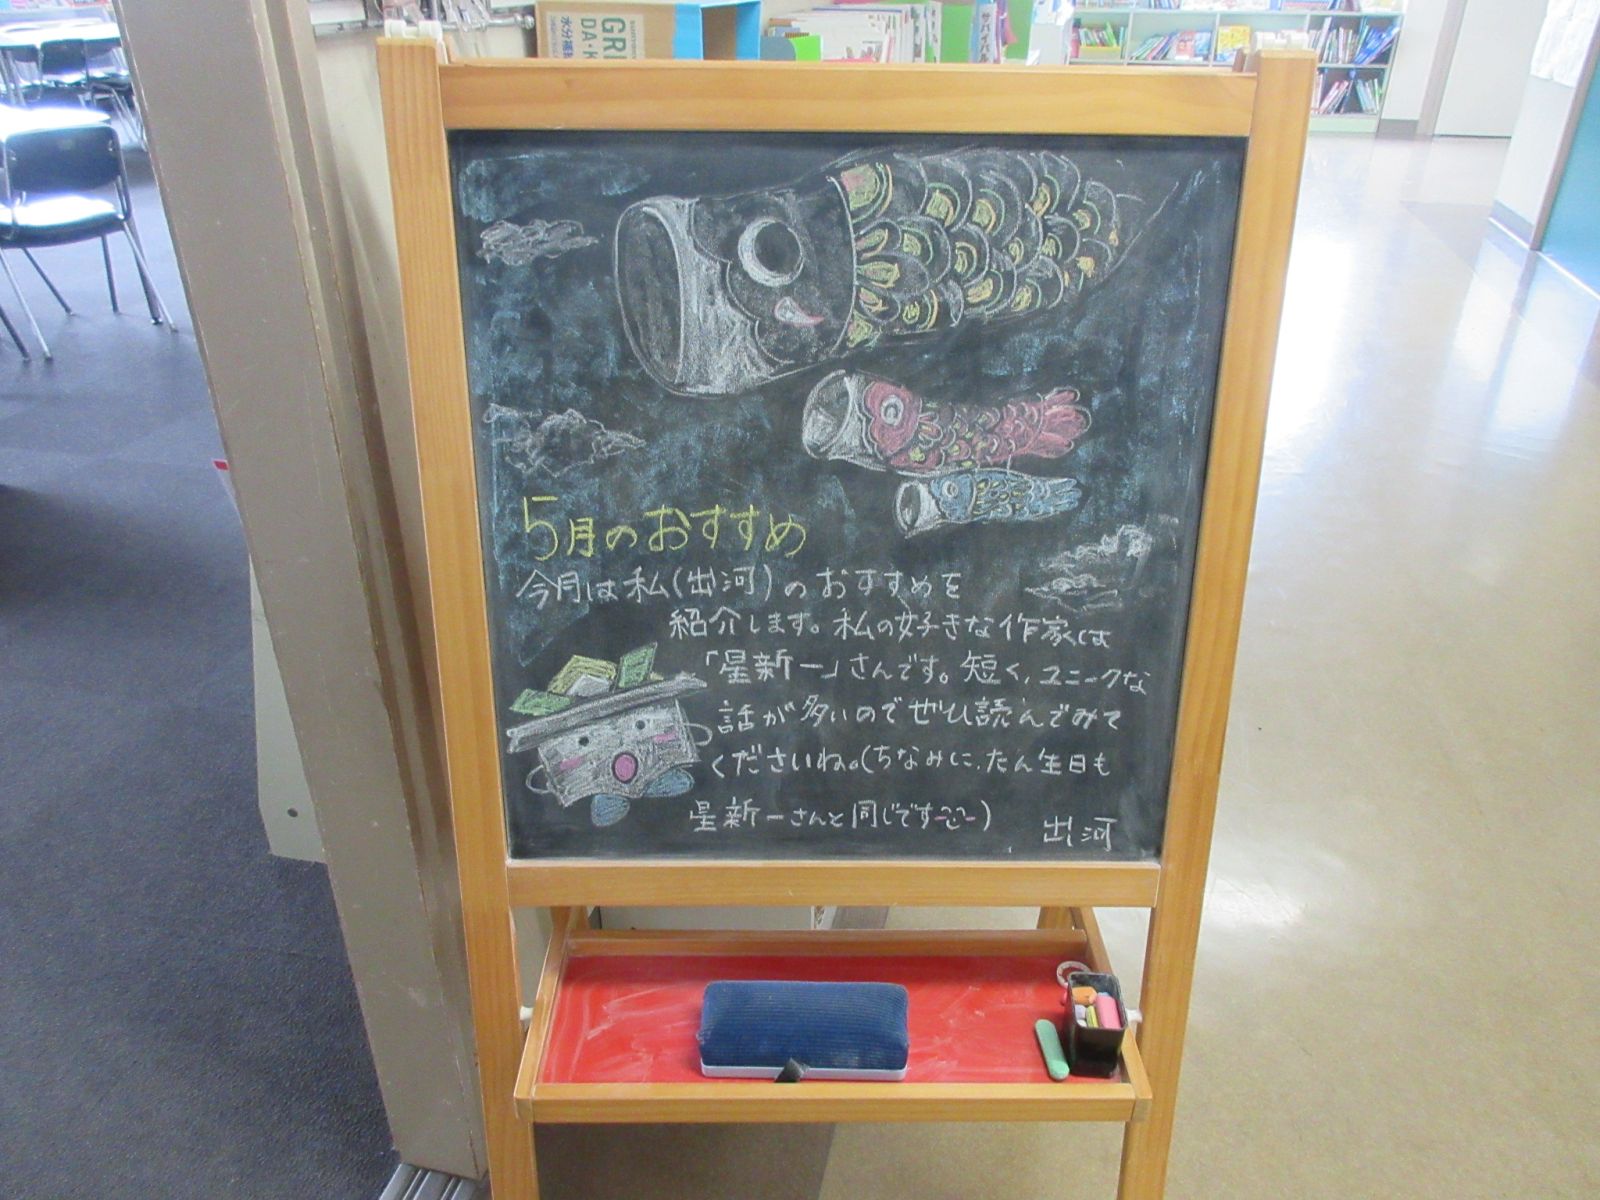 GRE
DA・K
水分補
サバイバル
5月のおすすめ
今月は私(出河)のおすすめを
紹介します。私の好きな作家は
「星新一」さんです。短く、ユニークな
話が多いのでぜひ読んでみて
くださいね。(ちなみに、たん生日も
星新一さんと同じです)
出河